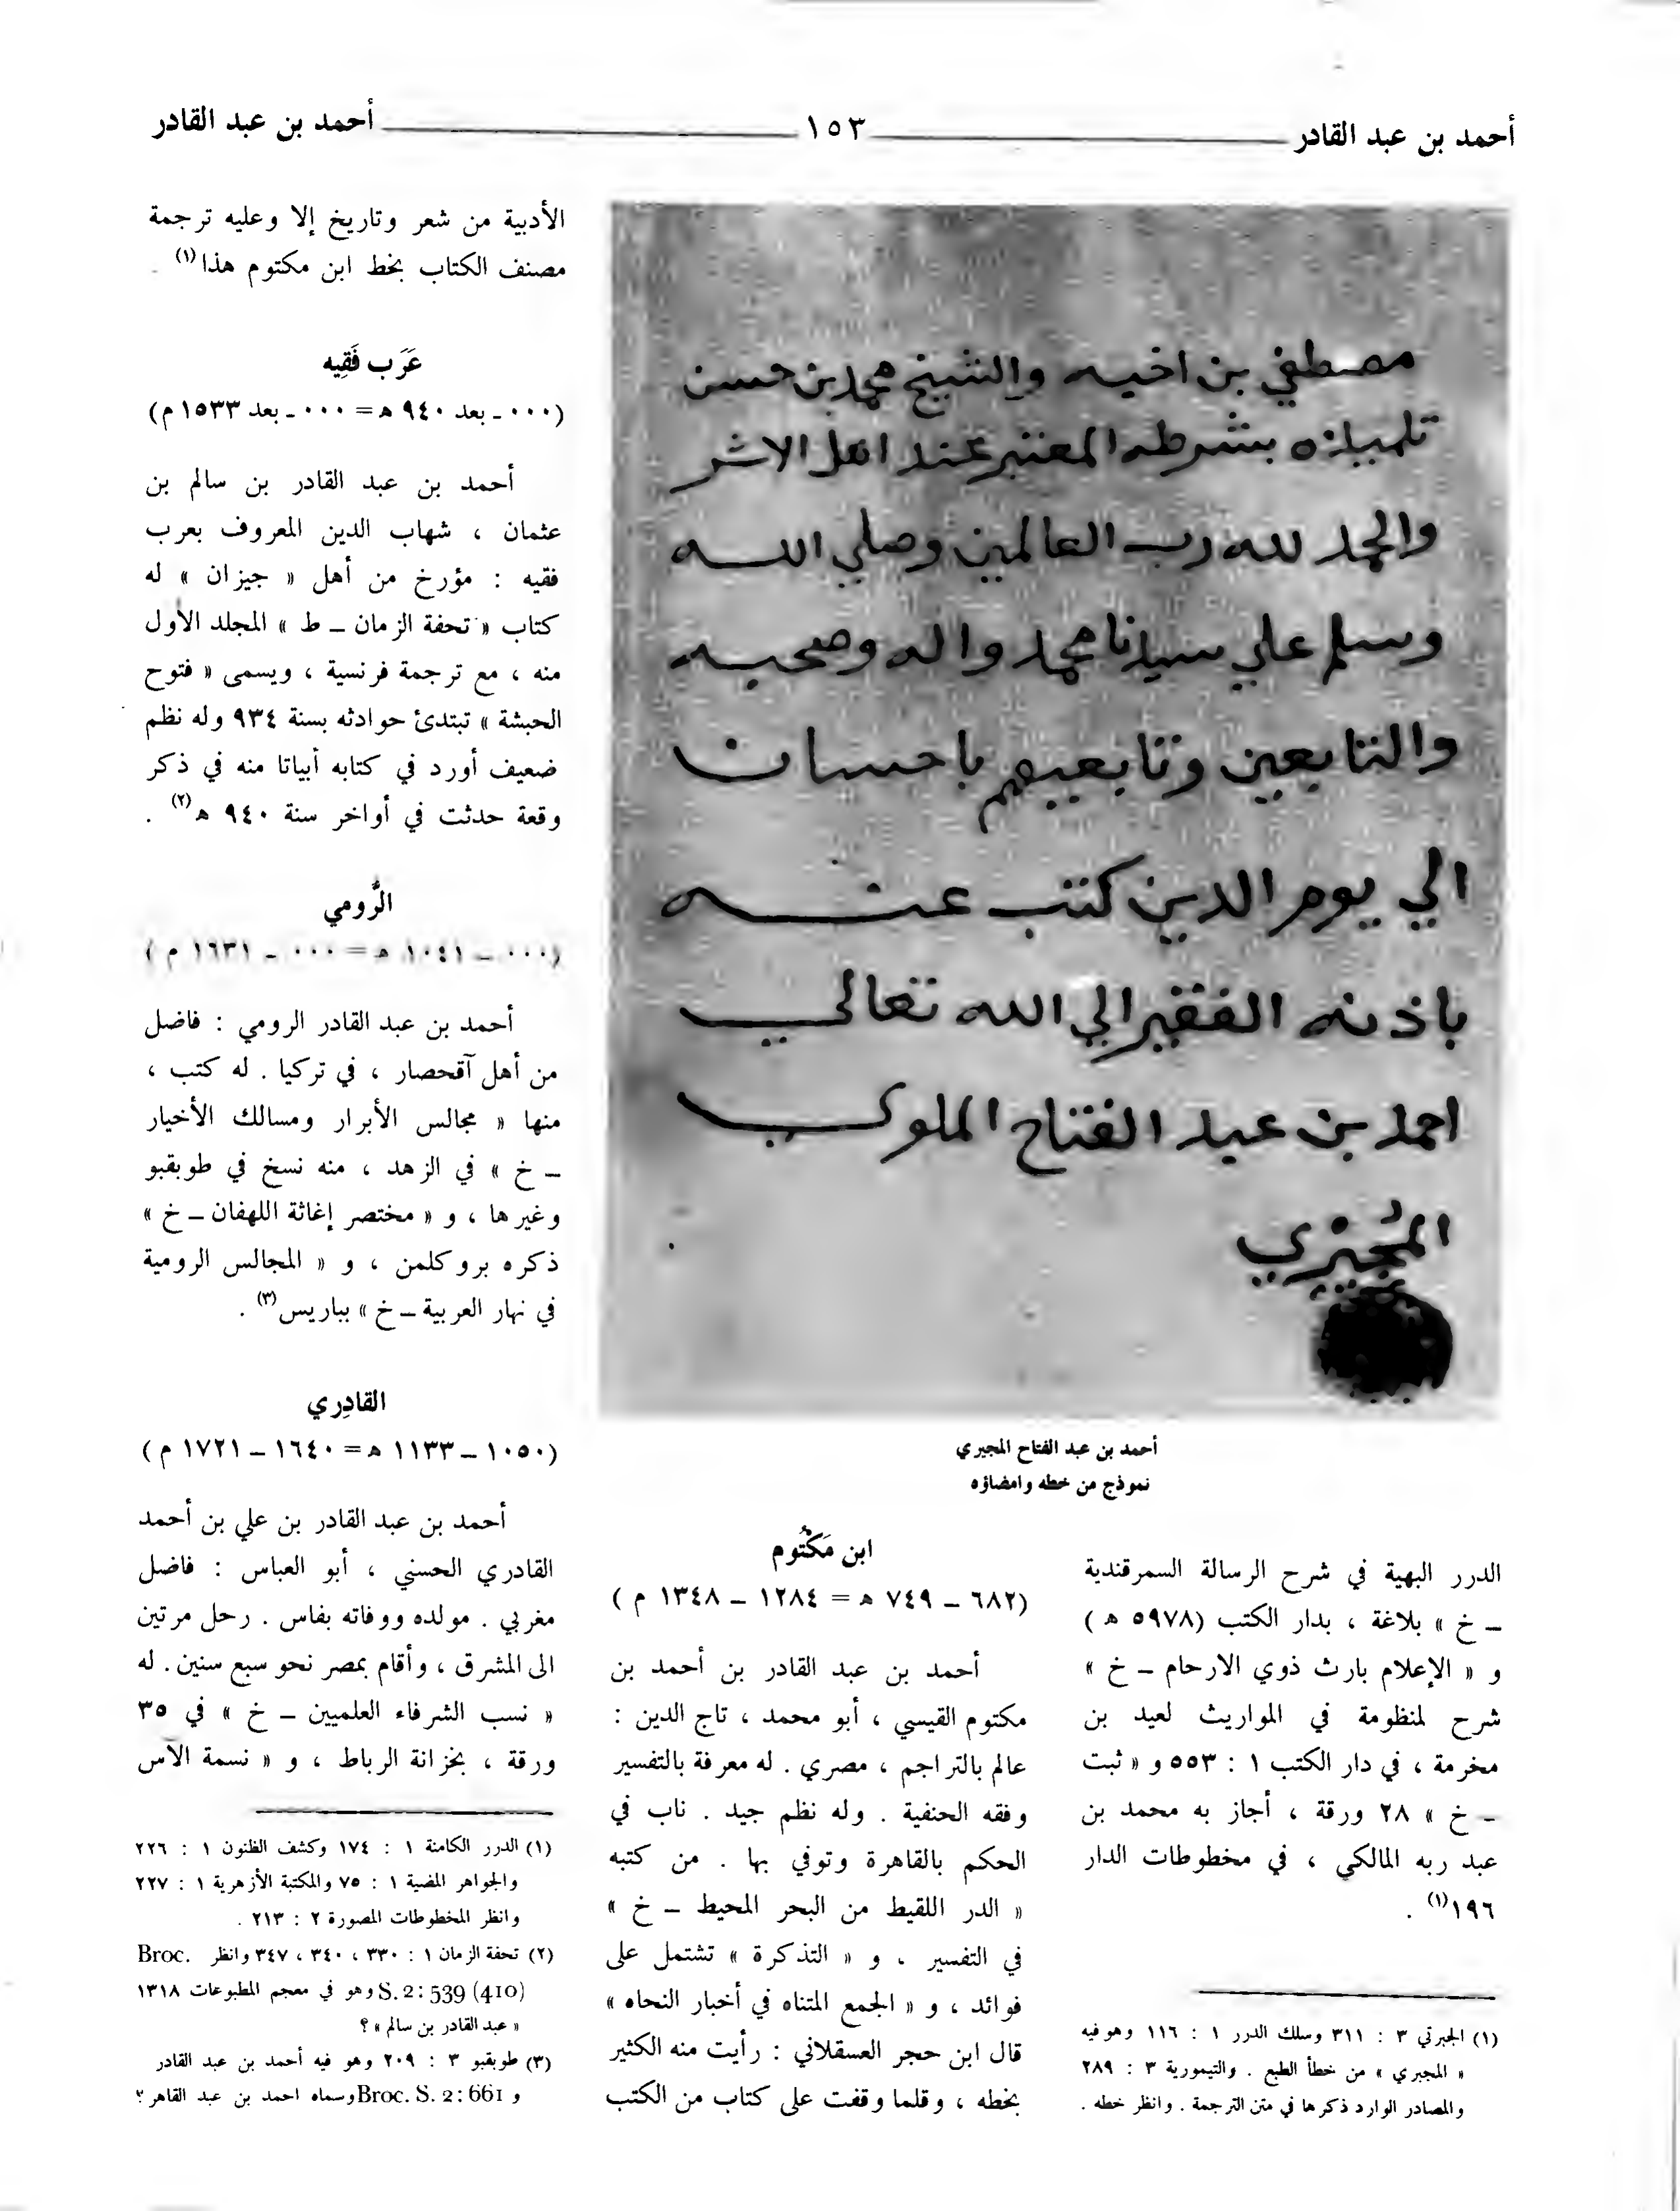 أحمد بن عبد القادر ١٥٣ أحمد بن عبد القادر
مصطفي بن اخيه والشيخ محمد بن حسن
تلميذه بشرطه المعتبر عند اهل الاثر
والحمد لله رب العالمين وصلي الله
وسلم علي سيدنا محمد واله وصحبه
والتابعين وتابعيهم باحسان
الي يوم الدين كتب عنه
باذنه الفقير الي الله تعالي
احمد بن عبد الفتاح الملوي
المُجيري
أحمد بن عبد الفتاح المجيري
نموذج من خطه وامضاؤه
الدرر البهية في شرح الرسالة السمرقندية
ـ خ » بلاغة ، بدار الكتب (٥٩٧٨ ه )
و « الإعلام بارث ذوي الارحام ـ خ »
شرح لمنظومة في المواريث لعيد بن
مخرمة ، في دار الكتب ١ : ٥٥٣ و « ثبت
ـ خ » ٢٨ ورقة ، أجاز به محمد بن
عبد ربه المالكي ، في مخطوطات الدار
١٩٦(١) .
(١) الجبرتي ٣ : ٣١١ وسلك الدرر ١ : ١١٦ وهو فيه
« المجبري » من خطأ الطبع . والتيمورية ٣ : ٢٨٩
والمصادر الوارد ذكرها في متن الترجمة . وانظر خطه .
ابن مَكْتُوم
(٦٨٢ ـ ٧٤٩ ه = ١٢٨٤ ـ ١٣٤٨ م )
أحمد بن عبد القادر بن أحمد بن
مكتوم القيسي ، أبو محمد ، تاج الدين :
عالم بالتراجم ، مصري . له معرفة بالتفسير
وفقه الحنفية . وله نظم جيد . ناب في
الحكم بالقاهرة وتوفي بها . من كتبه
« الدر اللقيط من البحر المحيط ـ خ »
في التفسير ، و « التذكرة » تشتمل على
فوائد ، و « الجمع المتناه في أخبار النحاه »
قال ابن حجر العسقلاني : رأيت منه الكثير
بخطه ، وقلما وقفت على كتاب من الكتب
الأدبية من شعر وتاريخ إلا وعليه ترجمة
مصنف الكتاب بخط ابن مكتوم هذا(١) .
عَرَب فَقِيه
(٠٠٠ ـ بعد ٩٤٠ ه = ٠٠٠ ـ بعد ١٥٣٣ م)
أحمد بن عبد القادر بن سالم بن
عثمان ، شهاب الدين المعروف بعرب
فقيه : مؤرخ من أهل « جيزان » له
كتاب « تحفة الزمان ـ ط » المجلد الأول
منه ، مع ترجمة فرنسية ، ويسمى « فتوح
الحبشة » تبتدئ حوادثه بسنة ٩٣٤ وله نظم
ضعيف أورد في كتابه أبياتا منه في ذكر
وقعة حدثت في أواخر سنة ٩٤٠ ه(٢) .
الرُّومي
(٠٠٠ ـ ١٠٤١ ه = ٠٠٠ ـ ١٦٣١ م )
أحمد بن عبد القادر الرومي : فاضل
من أهل آقحصار ، في تركيا . له كتب ،
منها « مجالس الأبرار ومسالك الأخيار
ـ خ » في الزهد ، منه نسخ في طوبقبو
وغيرها ، و « مختصر إغاثة اللهفان ـ خ »
ذكره بروكلمن ، و « المجالس الرومية
في نهار العربية ـ خ » بباريس(٣) .
القادِري
(١٠٥٠ ـ ١١٣٣ ه = ١٦٤٠ ـ ١٧٢١ م)
أحمد بن عبد القادر بن علي بن أحمد
القادري الحسني ، أبو العباس : فاضل
مغربي . مولده ووفاته بفاس . رحل مرتين
الى المشرق ، وأقام بمصر نحو سبع سنين . له
« نسب الشرفاء العلميين ـ خ » في ٣٥
ورقة ، بخزانة الرباط ، و « نسمة الآس
(١) الدرر الكامنة ١ : ١٧٤ وكشف الظنون ١ : ٢٢٦
والجواهر المضية ١ : ٧٥ والمكتبة الأزهرية ١ : ٢٢٧
وانظر المخطوطات المصورة ٢ : ٢١٣ .
(٢) تحفة الزمان ١ : ٣٣٠ ، ٣٤٠ ، ٣٤٧ وانظر Broc.
S. 2: 539 (410) وهو في معجم المطبوعات ١٣١٨
« عبد القادر بن سالم » ؟
(٣) طوبقبو ٣ : ٢٠٩ وهو فيه أحمد بن عبد القادر
و Broc. S. 2: 661 وسماه احمد بن عبد القاهر ؟